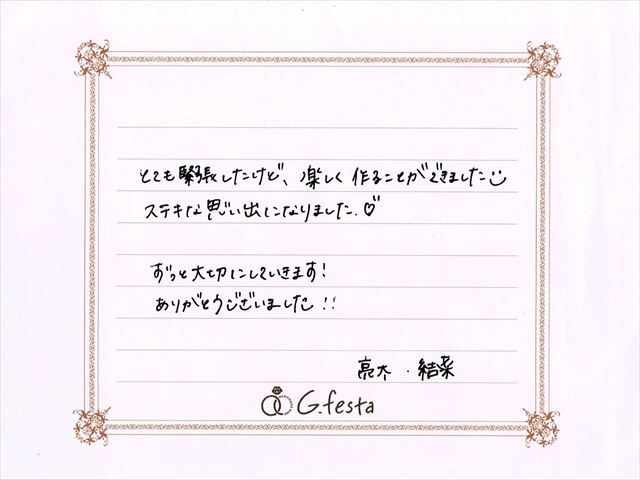 とても緊張したけど、楽しく作ることができました
ステキな思い出になりました.♡
ずっと大切にしていきます!
ありがとうございました!!
亮太・結菜
G.festa